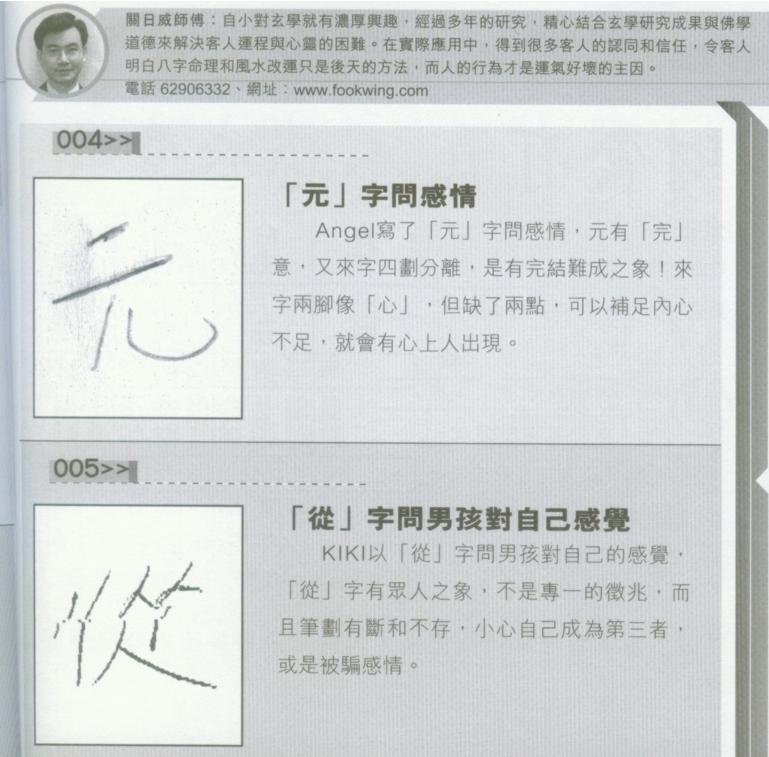 關日威師傅：自小對玄學就有濃厚興趣，經過多年的研究，精心結合玄學研究成果與佛學
道德來解決客人運程與心靈的困難。在實際應用中，得到很多客人的認同和信任，令客人
明白八字命理和風水改運只是後天的方法，而人的行為才是運氣好壞的主因。
電話 62906332、網址：www.fookwing.com
004>>
元
「元」字問感情
Angel寫了「元」字問感情，元有「完」
意，又來字四劃分離，是有完結難成之象！來
字兩腳像「心」，但缺了兩點，可以補足內心
不足，就會有心上人出現。
005>>
從
「從」字問男孩對自己感覺
KIKI以「從」字問男孩對自己的感覺，
「從」字有眾人之象，不是專一的徵兆，而
且筆劃有斷和不存，小心自己成為第三者，
或是被騙感情。